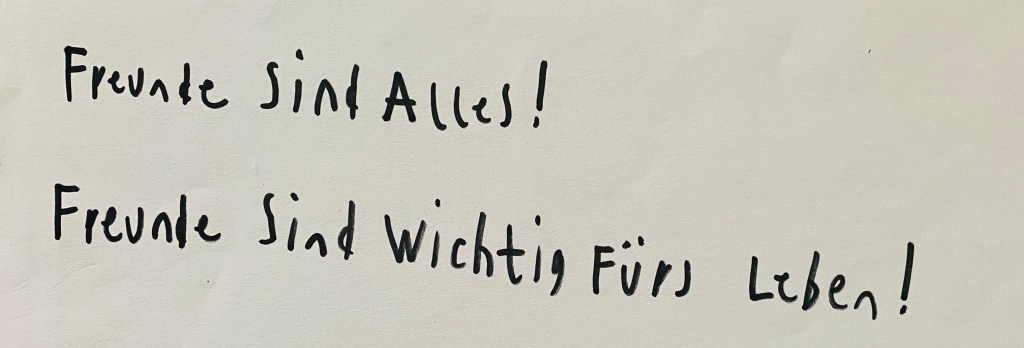 Freunde Sind Alles!
Freunde Sind Wichtig Fürs Leben!